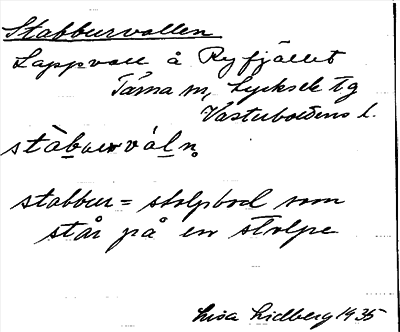 Stabburvallen
Lappvall å Ryfjället
Tärna sn, Lycksele tg
Västerbottens l.
stabbur = stolpbod som
står på en stolpe
Lisa Lidberg 1935